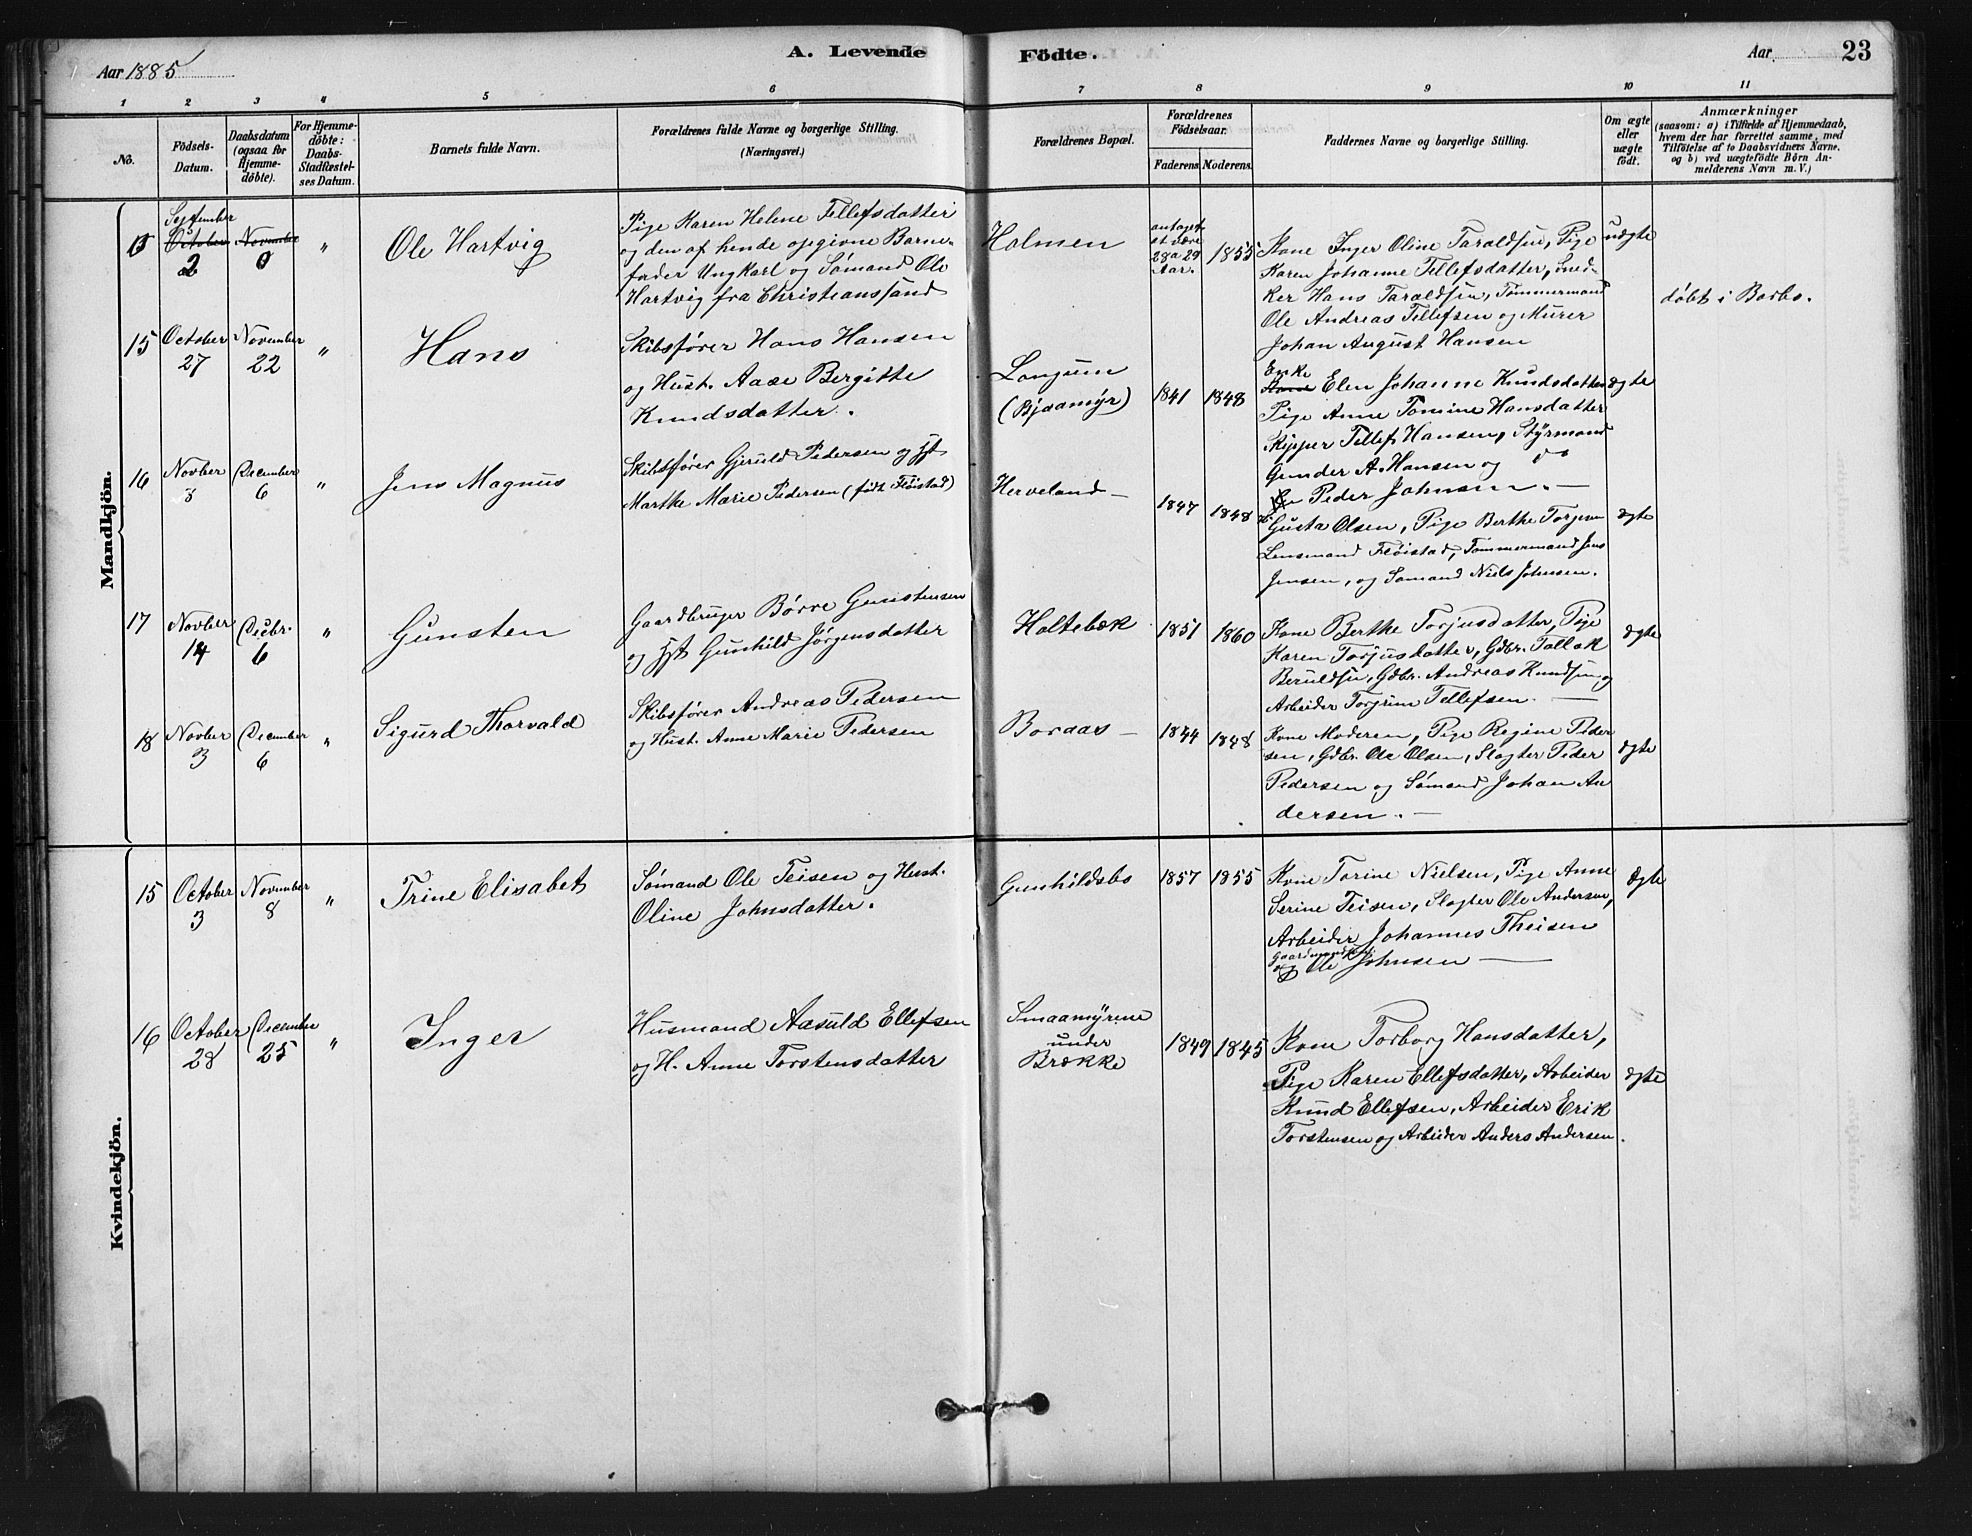 Aar 1885
A. Levende Födte.
Aar 23
1 2 3 4 5 6 7 8 9 10 11
No.
Födsels-
Datum.
Daabsdatum
(ogsaa for
Hjemme-
döbte).
For Hjemme-
döbte:
Daabs-
Stadfæstel-
ses Datum.
Barnets fulde Navn.
Forældrenes fulde Navne og borgerlige Stilling.
(Næringsvei.)
Forældrenes Bopæl.
Forældrenes
Födselsaar.
Faderens. Moderens.
Faddernes Navne og borgerlige Stilling.
Om ægte
eller
uægte
födt.
Anmærkninger
(saasom: a) i Tilfælde af Hjemmedaab,
hvem der har forrettet samme, med
Tilföielse af to Daabsvidners Navne,
og b) ved uægtefödte Börn An-
melderens Navn m. V.)
Mandkjön.
September
October November
2 0
"
Ole Hartvig
Pige Karen Helene Tellefsdatter
og den af hende opgivne Barne-
fader Ungkarl og Sømand Ole
Hartvig fra Christianssand
Holmen
antaget
at være
28 a 29
Aar.
1855
Kone Inger Oline Taraldsen, Pige
Karen Johanne Tellefsdatter, Sned-
ker Hans Taraldsen, Tømmermand
Ole Andreas Tellefsen og Murer
Johan August Hansen
uægte
døbt i Barbo.
15 October November
27 22
"
Hans
Skibsfører Hans Hansen
og Hust. Aase Bergitte
Knudsdatter.
Longum
(Bjaamyr)
1841 1848
Enke
Elen Johanne Knudsdatter
Pige Anne Tomine Hansdatter
Skipper Tellef Hansen, Styrmand
Gunder A. Hansen og do
Peder Johnsen. —
ægte
16 Novber December
3 6
"
Jens Magnus
Skibsfører Gjeruld Pedersen og Hst
Marthe Marie Pedersen (født Fløistad)
Herveland —
1847 1848
Gusta Olsen, Pige Berthe Torjesen
Lensmand Fløistad, Tømmermand Jens
Jensen, og Sømand Niels Johnsen.
ægte
17 Novber Decbr.
14 6
"
Gunsten
Gaardbruger Børre Gunstensen
og Hst Gunhild Jørgensdatter
Holtebæk
1851 1860
Kone Berthe Torjusdatter, Pige
Karen Torjusdatter, Gdbr. Tallak
Beruldsen, Gdbr. Andreas Knudsen og
Arbeider Torjum Tellefsen. —
ægte
18 Novber December
3 6
"
Sigurd Thorvald
Skibsfører Andreas Pedersen
og Hust. Anne Marie Pedersen
Boraas —
1844 1848
Kone Moderen, Pige Regine Peder
sen, Gdbr. Ole Olsen, Slagter Peder
Pedersen og Sømand Johan An
dersen. —
ægte
Kvindekjön.
15 October November
3 8
"
Trine Elisabet
Sømand Ole Teisen og Hust.
Oline Johnsdatter.
Gunhildsbo
1857 1855
Kone Torine Nielsen, Pige Anne
Serine Teisen, Slagter Ole Andersen,
Arbeider Johannes Theisen
og Ole Johnsen —
ægte
16 October December
28 25
"
Inger
Husmand Aasuld Ellefsen
og H. Anne Torstensdatter
Smaamyrene
under
Brække
1849 1845
Kone Torborg Hansdatter,
Pige Karen Ellefsdatter, Arbeider
Knud Ellefsen, Arbeider Erik
Torstensen og Arbeider Anders Andersen.
ægte